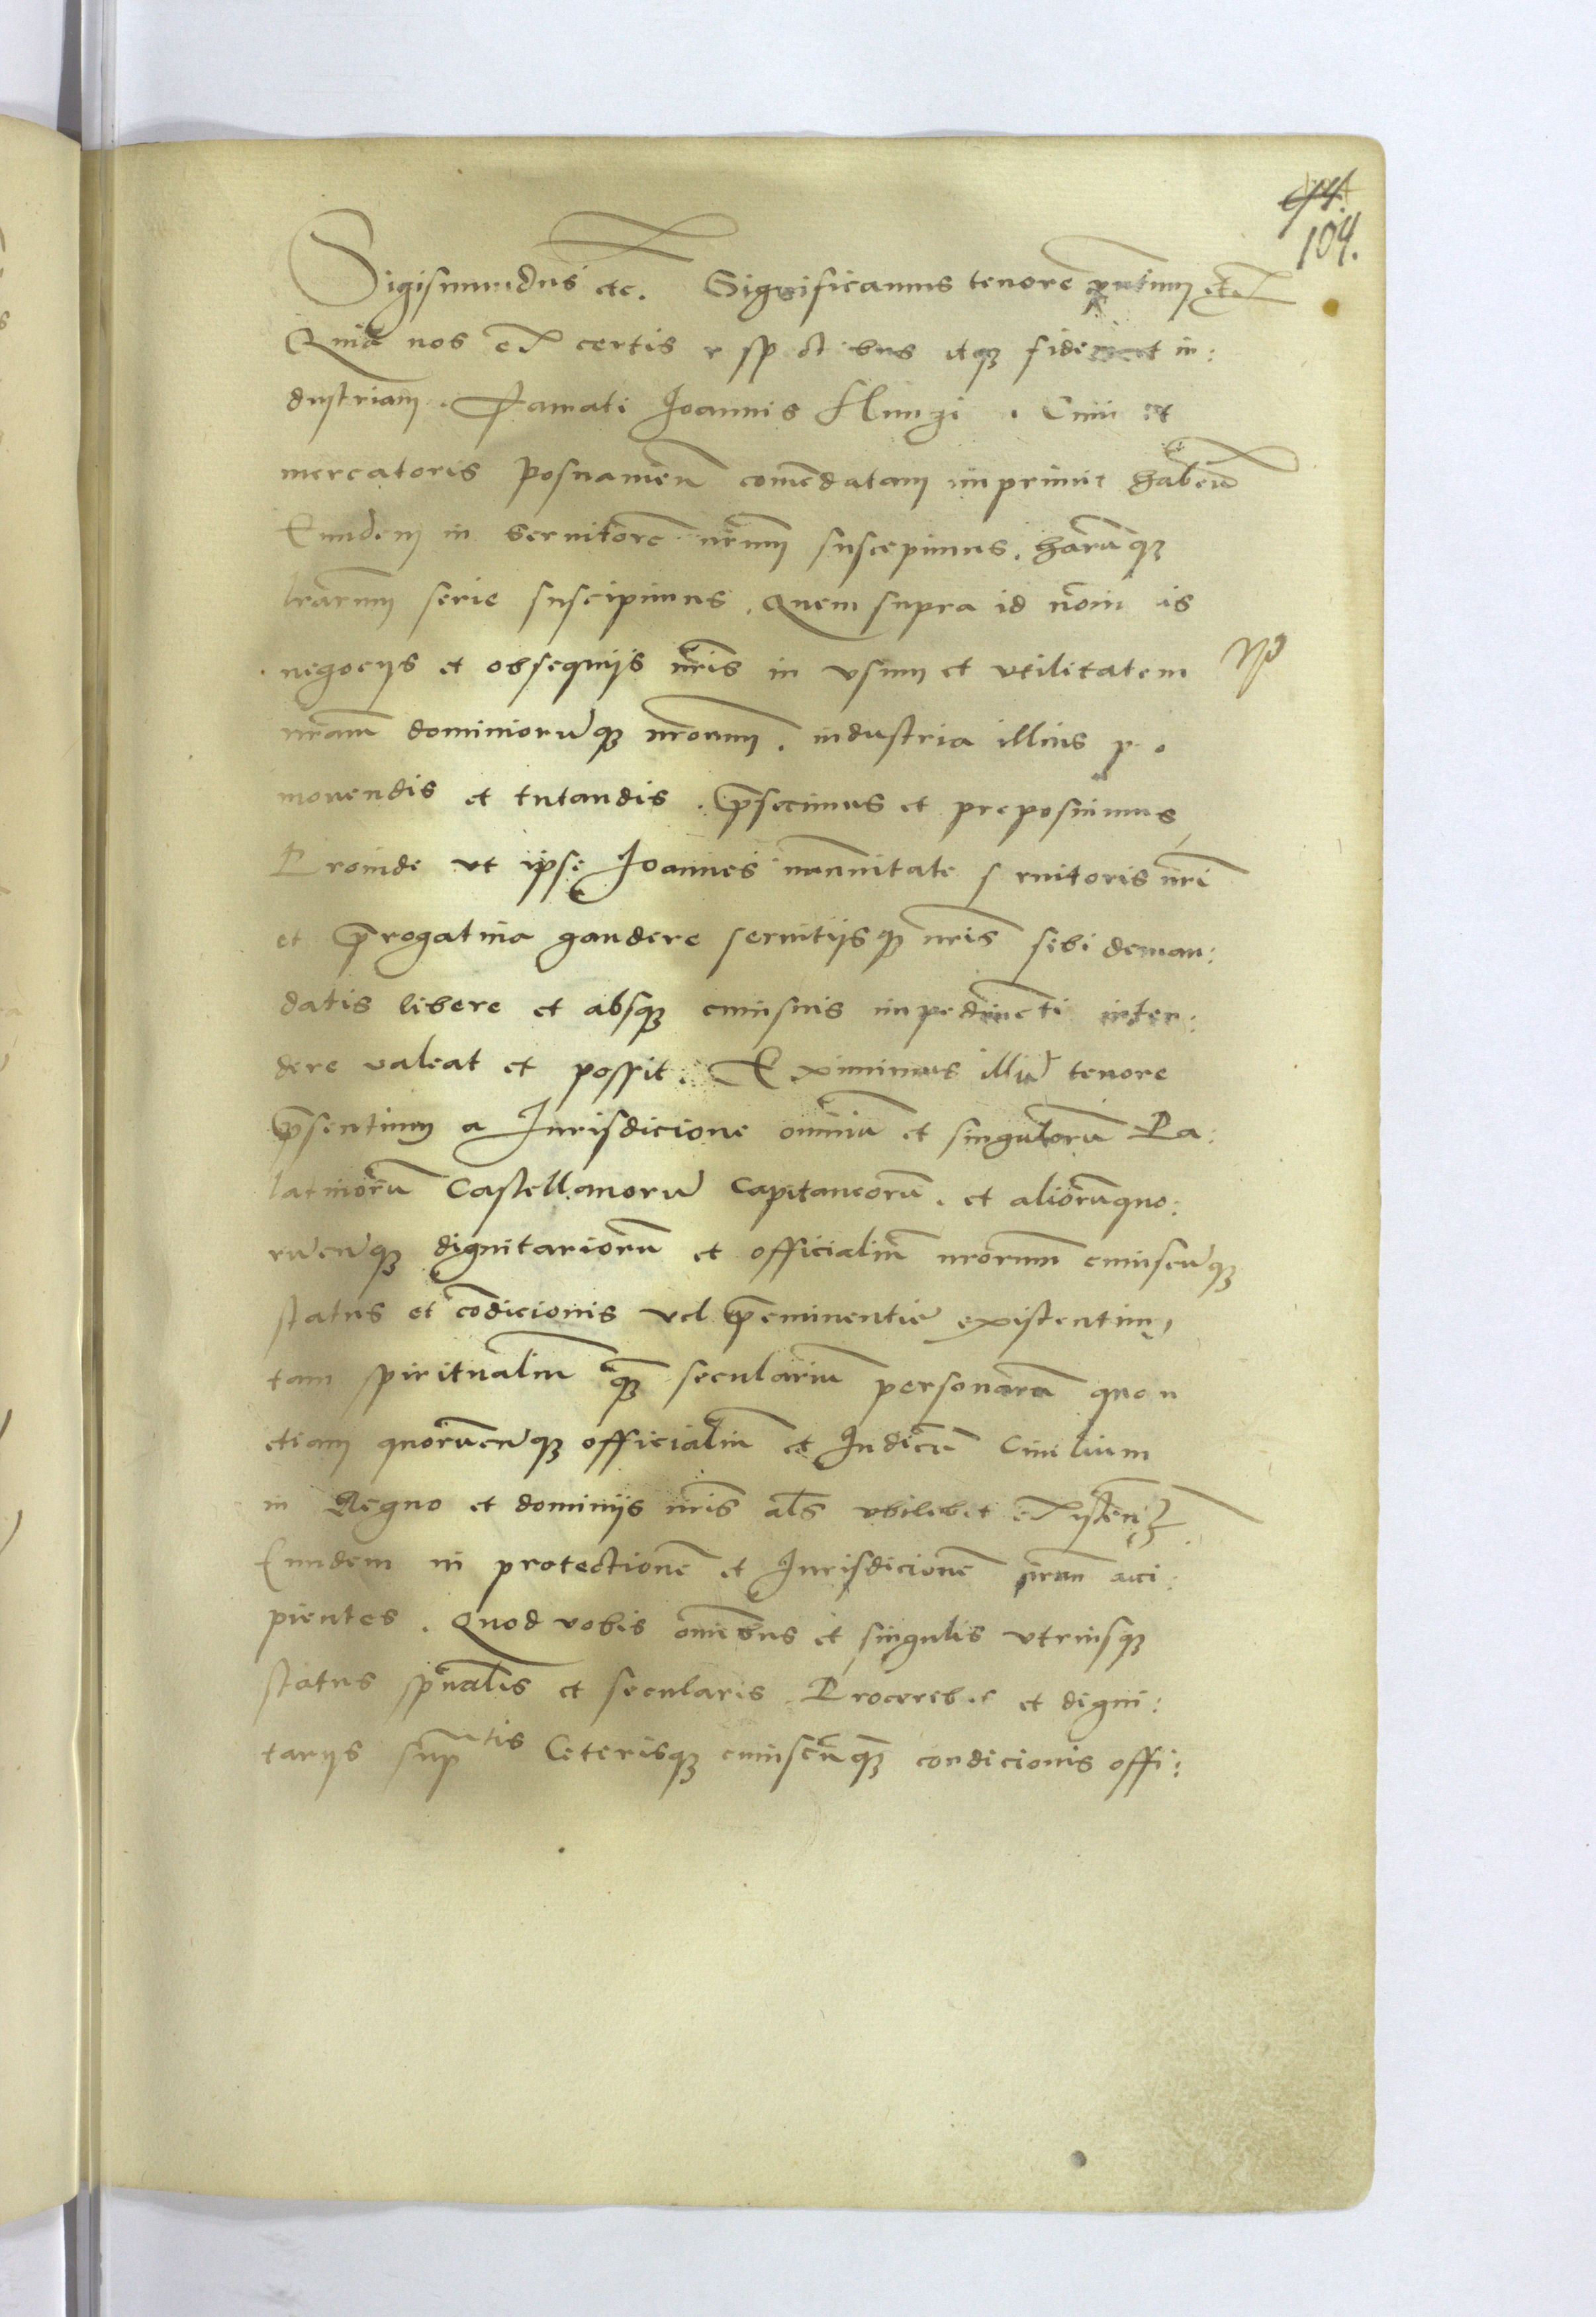 94.
104.
Sigismundus etc. Significamus tenore pñtium etc
Quia nos ex certis respectibus itaqꝫ fidem et in:
dustriam. Famati Joannis Clunzi. Ciui et
mercatoris posnamen̄ com̄endatam inprimis haben̄
Eundem in seruitore nr̄um suscepimus. harūqꝫ
lr̄arum serie suscipimus. Quem supra id nom̄ is
negocijs et obsequijs nr̄is in vsum et vtilitatem
nr̄am dominiorūqꝫ nr̄orum. industria illius pro
mouendis et tutandis. p̄fecimus et preposuimus
Proinde vt ipse Joannes immunitate seruitoris nr̄i
et p̄rogatiua gaudere seruitijsqꝫ nr̄is sibi deman:
datis libere et absqꝫ cuiusuis impedimēti inten:
dere valeat et possit. Eximimus illū tenore
p̄sentium a Jurisdicione om̄niū et singulorū Pa:
latinorū Castellanorū Capitaneorū. et aliorūquo:
rūcūqꝫ dignitariorū et officialiū nr̄orum cuiuscūqꝫ
status et cōdicionis vel p̄eminentie existentium
tam spiritualiū qꝫ seculariū personarū quon
etiam quorūcūqꝫ officialiū et Judicū Ciuilium
in Regno et dominijs nr̄is al̄s vbilibet existen̄
Eundem in protectionē et Jurisdicionē nr̄am acci:
pientes. Quod vobis om̄ibus et singulis vtriusqꝫ
status sp̄ualis et secularis. Proceribus et digni:
tarijs sup̄tis Ceterisqꝫ cuiuscūqꝫ condicionis offi: